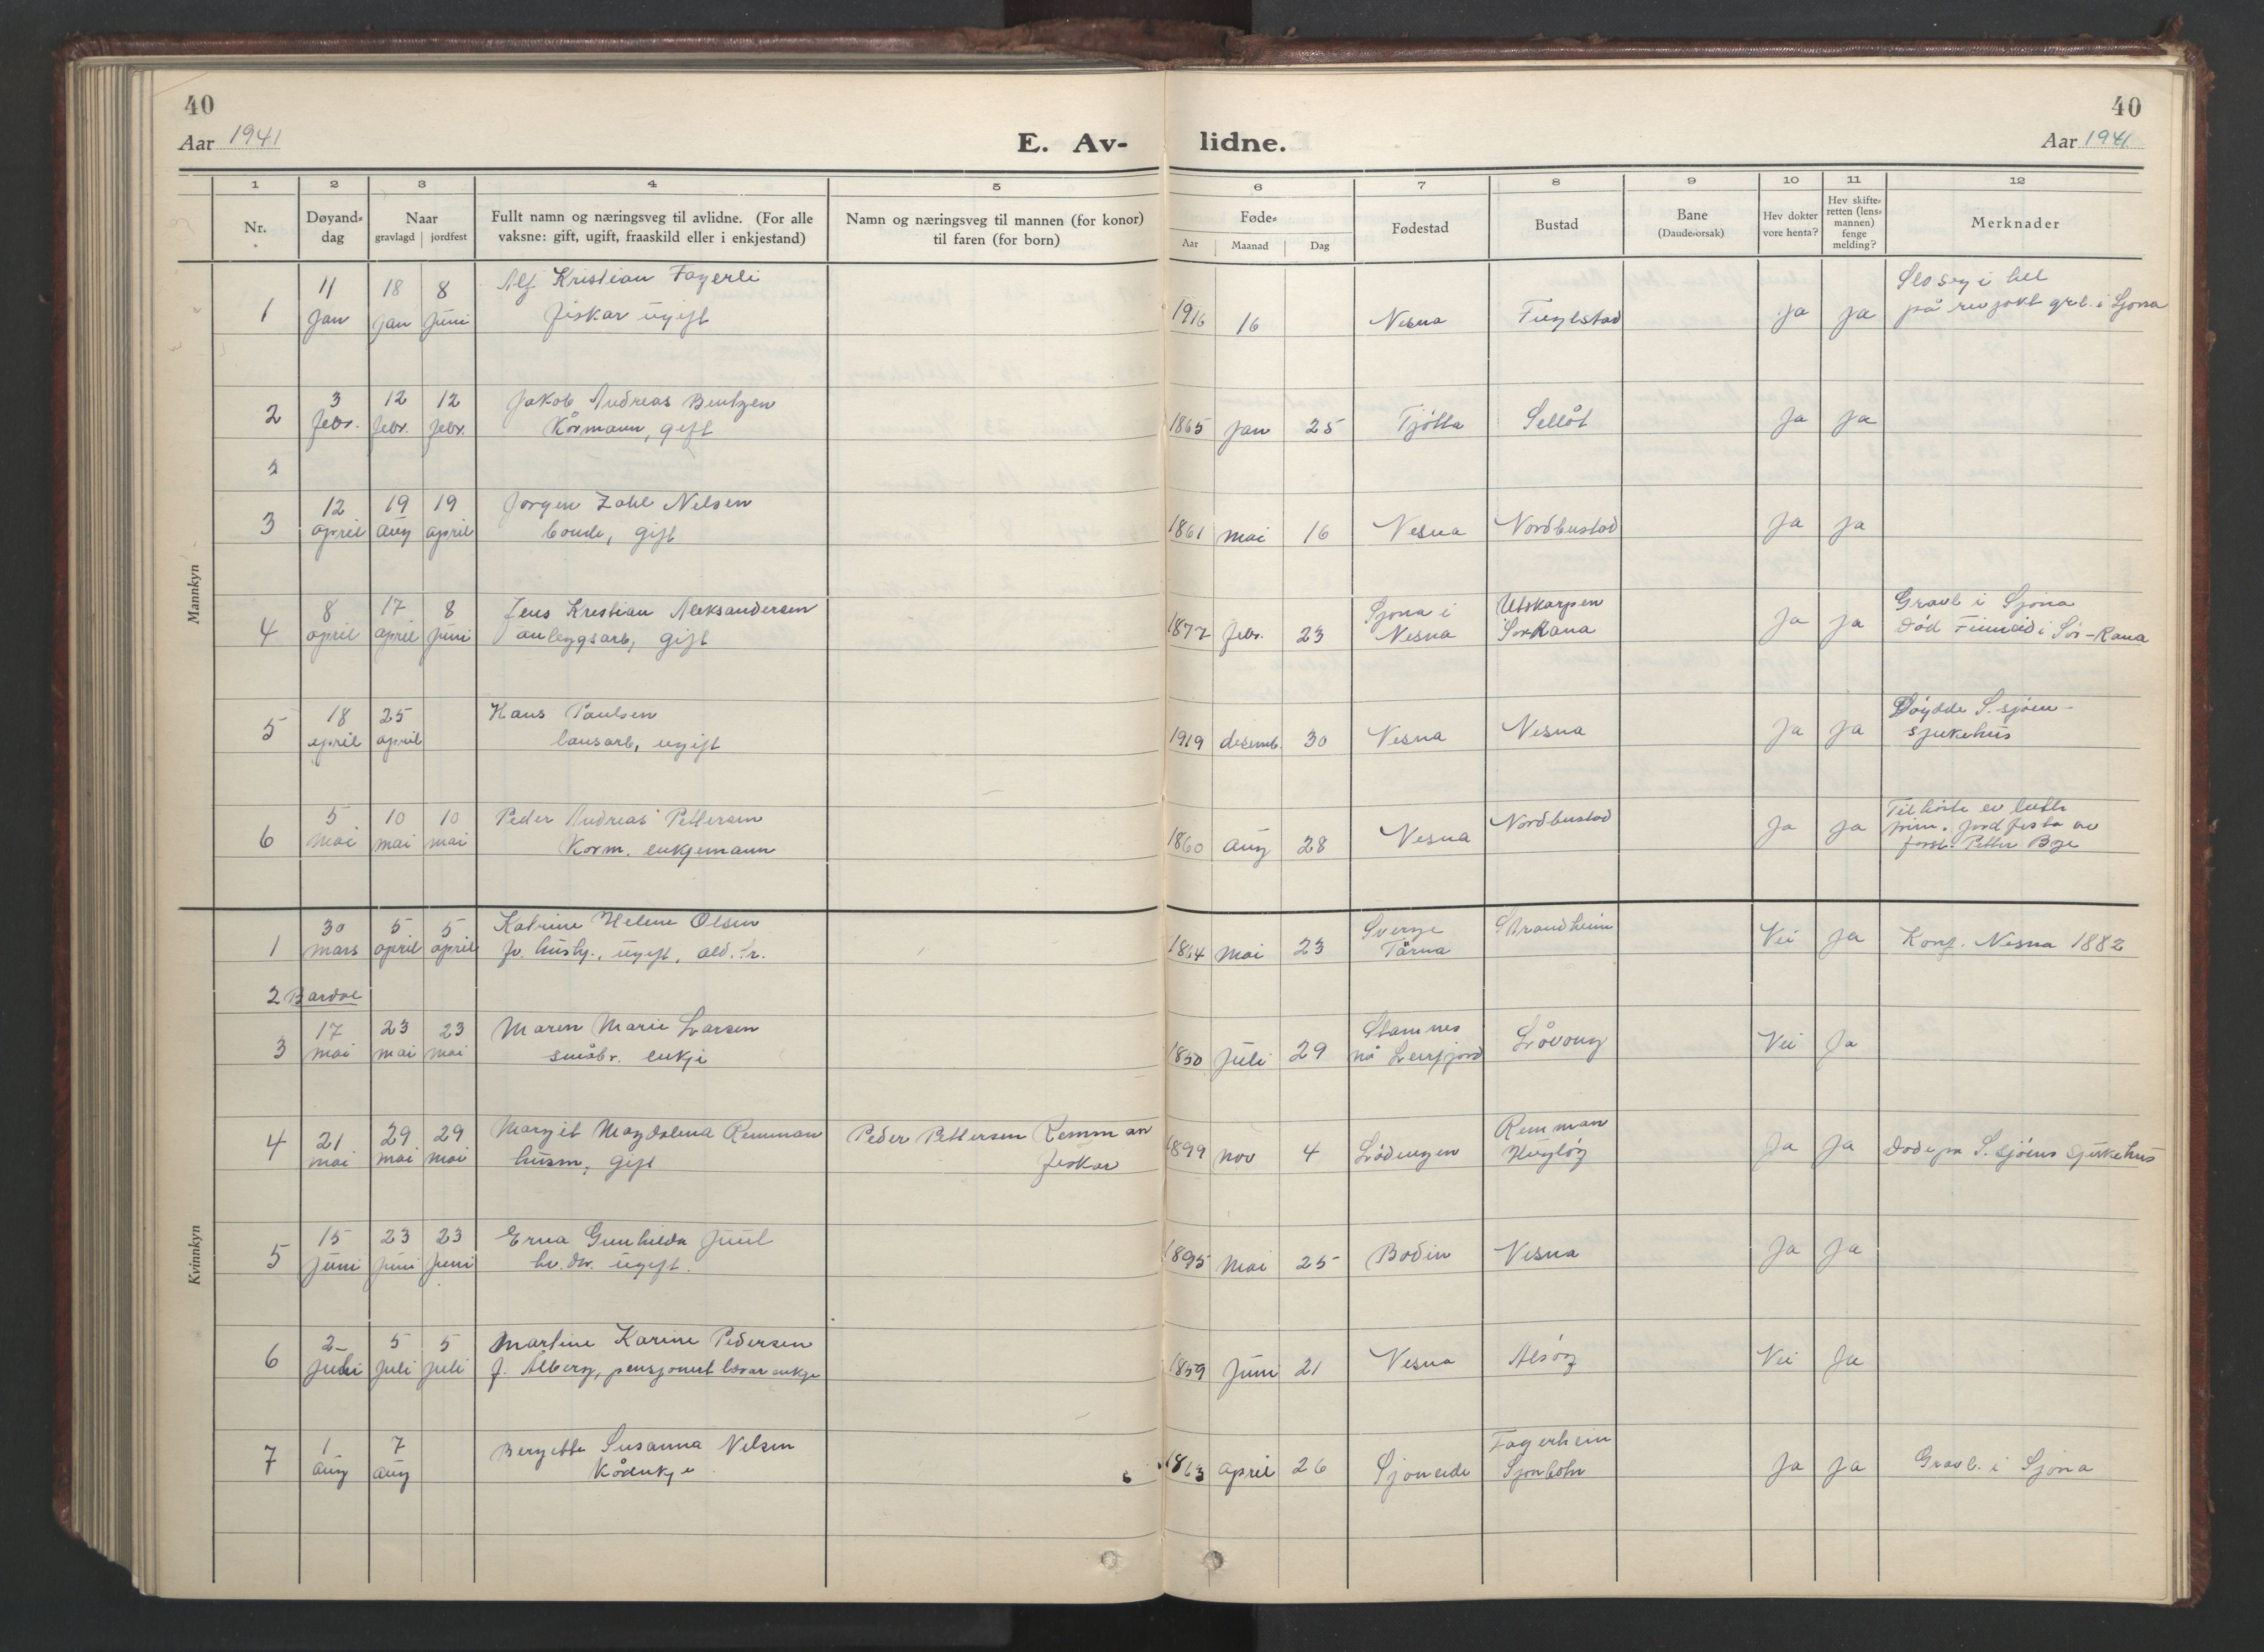 40
40
Aar 1941
E. Av-
lidne.
Aar 1941
1 2 3 4 5 6 7 8 9 10 11 12
Nr.
Døyand-
dag
Naar
gravlagd | jordfest
Fullt namn og næringsveg til avlidne. (For alle
vaksne: gift, ugift, fraaskild eller i enkjestand)
Namn og næringsveg til mannen (for konor)
til faren (for born)
Føde-
Aar Maanad Dag
Fødestad
Bustad
Bane
(Daude-orsak)
Hev dokter
vore henta?
Hev skifte-
retten (lens-
mannen)
fenge
melding?
Merknader
Mannkyn
11 18 8 Alf Kristian Fagerli Slo seg i hel
1 Jan Jan Juni fiskar ugift 1916 16 Nesna Fuglstad Ja Ja på revjakt grl. i Sjona
3 12 12 Jakob Andreas Bentzen
2 febr. febr. febr. Kårmann, gift 1865 Jan 25 Tjøtta Sellåt Ja Ja
2
12 19 19 Jørgen Zahl Nelsen
3 april aug april bonde, gift 1861 mai 16 Nesna Nordbustad Ja Ja
8 17 8 Jens Kristian Aleksandersen Sjona i Utskarpen Gravl. i Sjona
4 april april Juni anleggsarb, gift 1877 febr. 23 Nesna Sør Rana Ja Ja Død Finneid i Sør-Rana
18 25 Hans Paulsen Døydde S. sjøen-
5 april april lausarb, ugift 1919 desemb. 30 Nesna Nesna Ja Ja sjukehus
5 10 10 Peder Andreas Pettersen Nordbustad Tilhørte ev luth
6 mai mai mai Korm. enkjemann 1860 Aug 28 Nesna Ja Ja frim. jordfesta av
forst. Petter Bye
Kvinnkyn
30 5 5 Katrine Helene Olsen Sverge Strandheim
1 mars april april fv. hush., ugift, ald.tr. 1864 Mai 23 Tärna Nei Ja Konf. Nesna 1882
2 Bardal
17 23 23 Maren Marie Larsen Stamnes
3 mai mai mai småbr. enkje 1850 Juli 29 nå Leirfjord Låvong Nei Ja
29 29 Margit Magdalena Remman Peder Pettersen Remman Remman
4 21 mai mai mai husm, gift fiskar 1899 nov 4 Lødingen Hugløy Ja Ja Døde på S. sjøens sjukehus
15 23 23 Erna Gunhilda Juul
5 Juni Juni Juni hv. dtr. ugift. 1895 Mai 25 Bodin Nesna Ja Ja
2 5 5 Martine Karine Pedersen
6 Juli Juli Juli f. Alberg, pensjonert lærar enkje 1859 Juni 21 Nesna Alsøy Nei Ja
1 7 Bergitte Susanna Nelsen Fagerheim
7 aug aug Kårenkje 1863 April 26 Sjoneide Sjonbotn Ja Ja Gravl. i Sjona